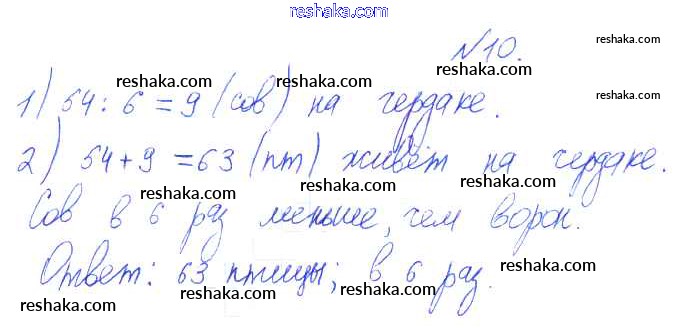 reshaka.com
№10.
reshaka.com
reshaka.com
reshaka.com
1) 54 : 6 = 9 (сов) на чердаке.
reshaka.com
reshaka.com
reshaka.com
2) 54 + 9 = 63 (пт) живёт на чердаке.
reshaka.com
reshaka.com
reshaka.com
Сов в 6 раз меньше, чем ворон.
reshaka.com
Ответ: 63 птицы; в 6 раз.
reshaka.com
reshaka.com
reshaka.com